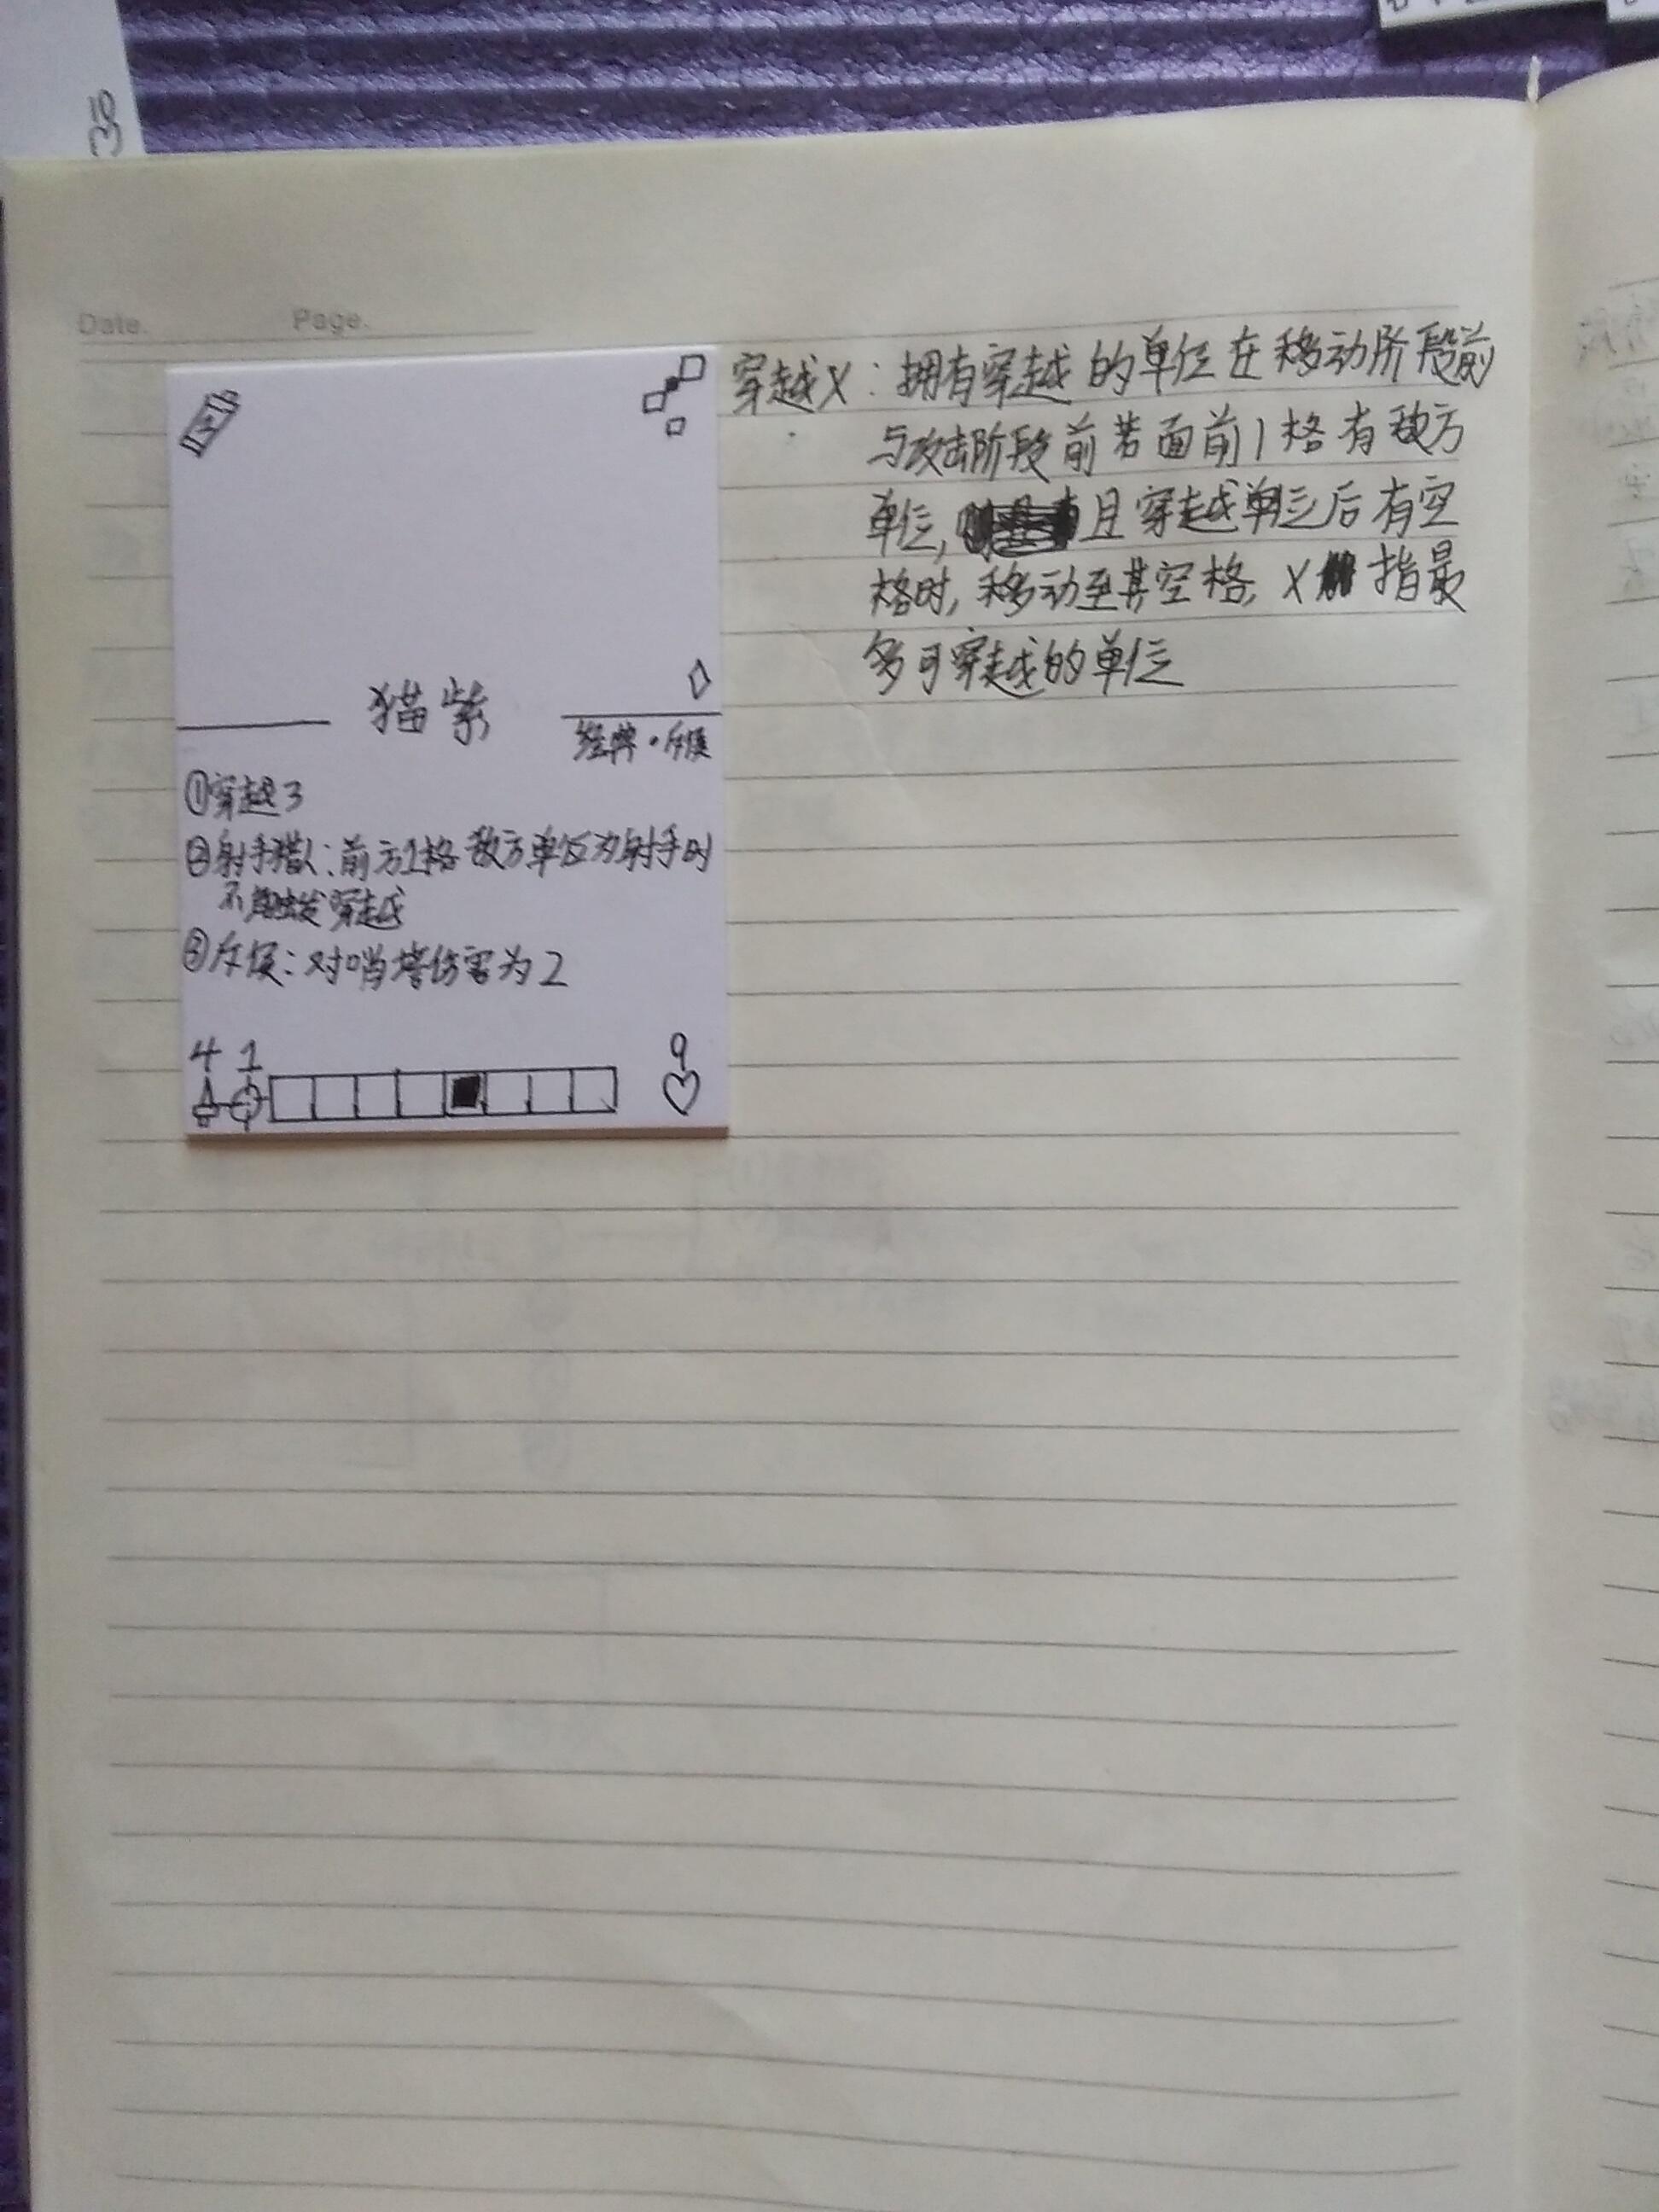 Date.
Page.
穿越X：拥有穿越的单位在移动阶段前
与攻击阶段前若面前1格有敌方
单位，且穿越单位后有空
格时，移动至其空格，X指最
多可穿越的单位
猫紫
经典·斥候
①穿越3
②射手猎人：前方1格敌方单位为射手时
不触发穿越
③斥候：对哨塔伤害为2
4 1
9